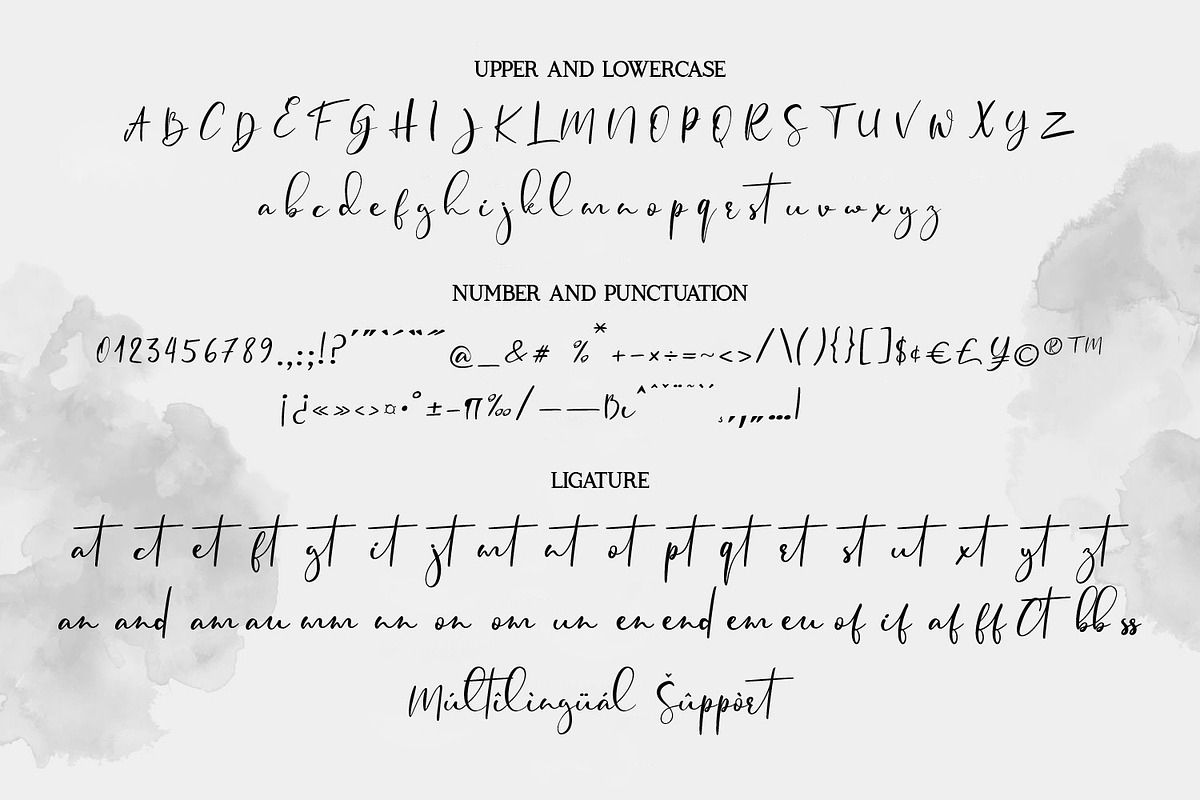 UPPER AND LOWERCASE
A B C D E F G H I J K L M N O P Q R S T U V W X Y Z
a b c d e f g h i j k l m n o p q r s t u v w x y z
NUMBER AND PUNCTUATION
0123456789.,:;!? @_&# % * +-×÷=~<>/\(){}[]$¢€£¥©®™
¡¿«»‹›¤•°±-¶‰/–—
LIGATURE
at ct et ft gt it jt mt nt ot pt qt rt st ut xt yt zt
an and am au mm nn on om un en end em eu of if af ff Ct bb ss
Múltîlingüál Šûppòrt